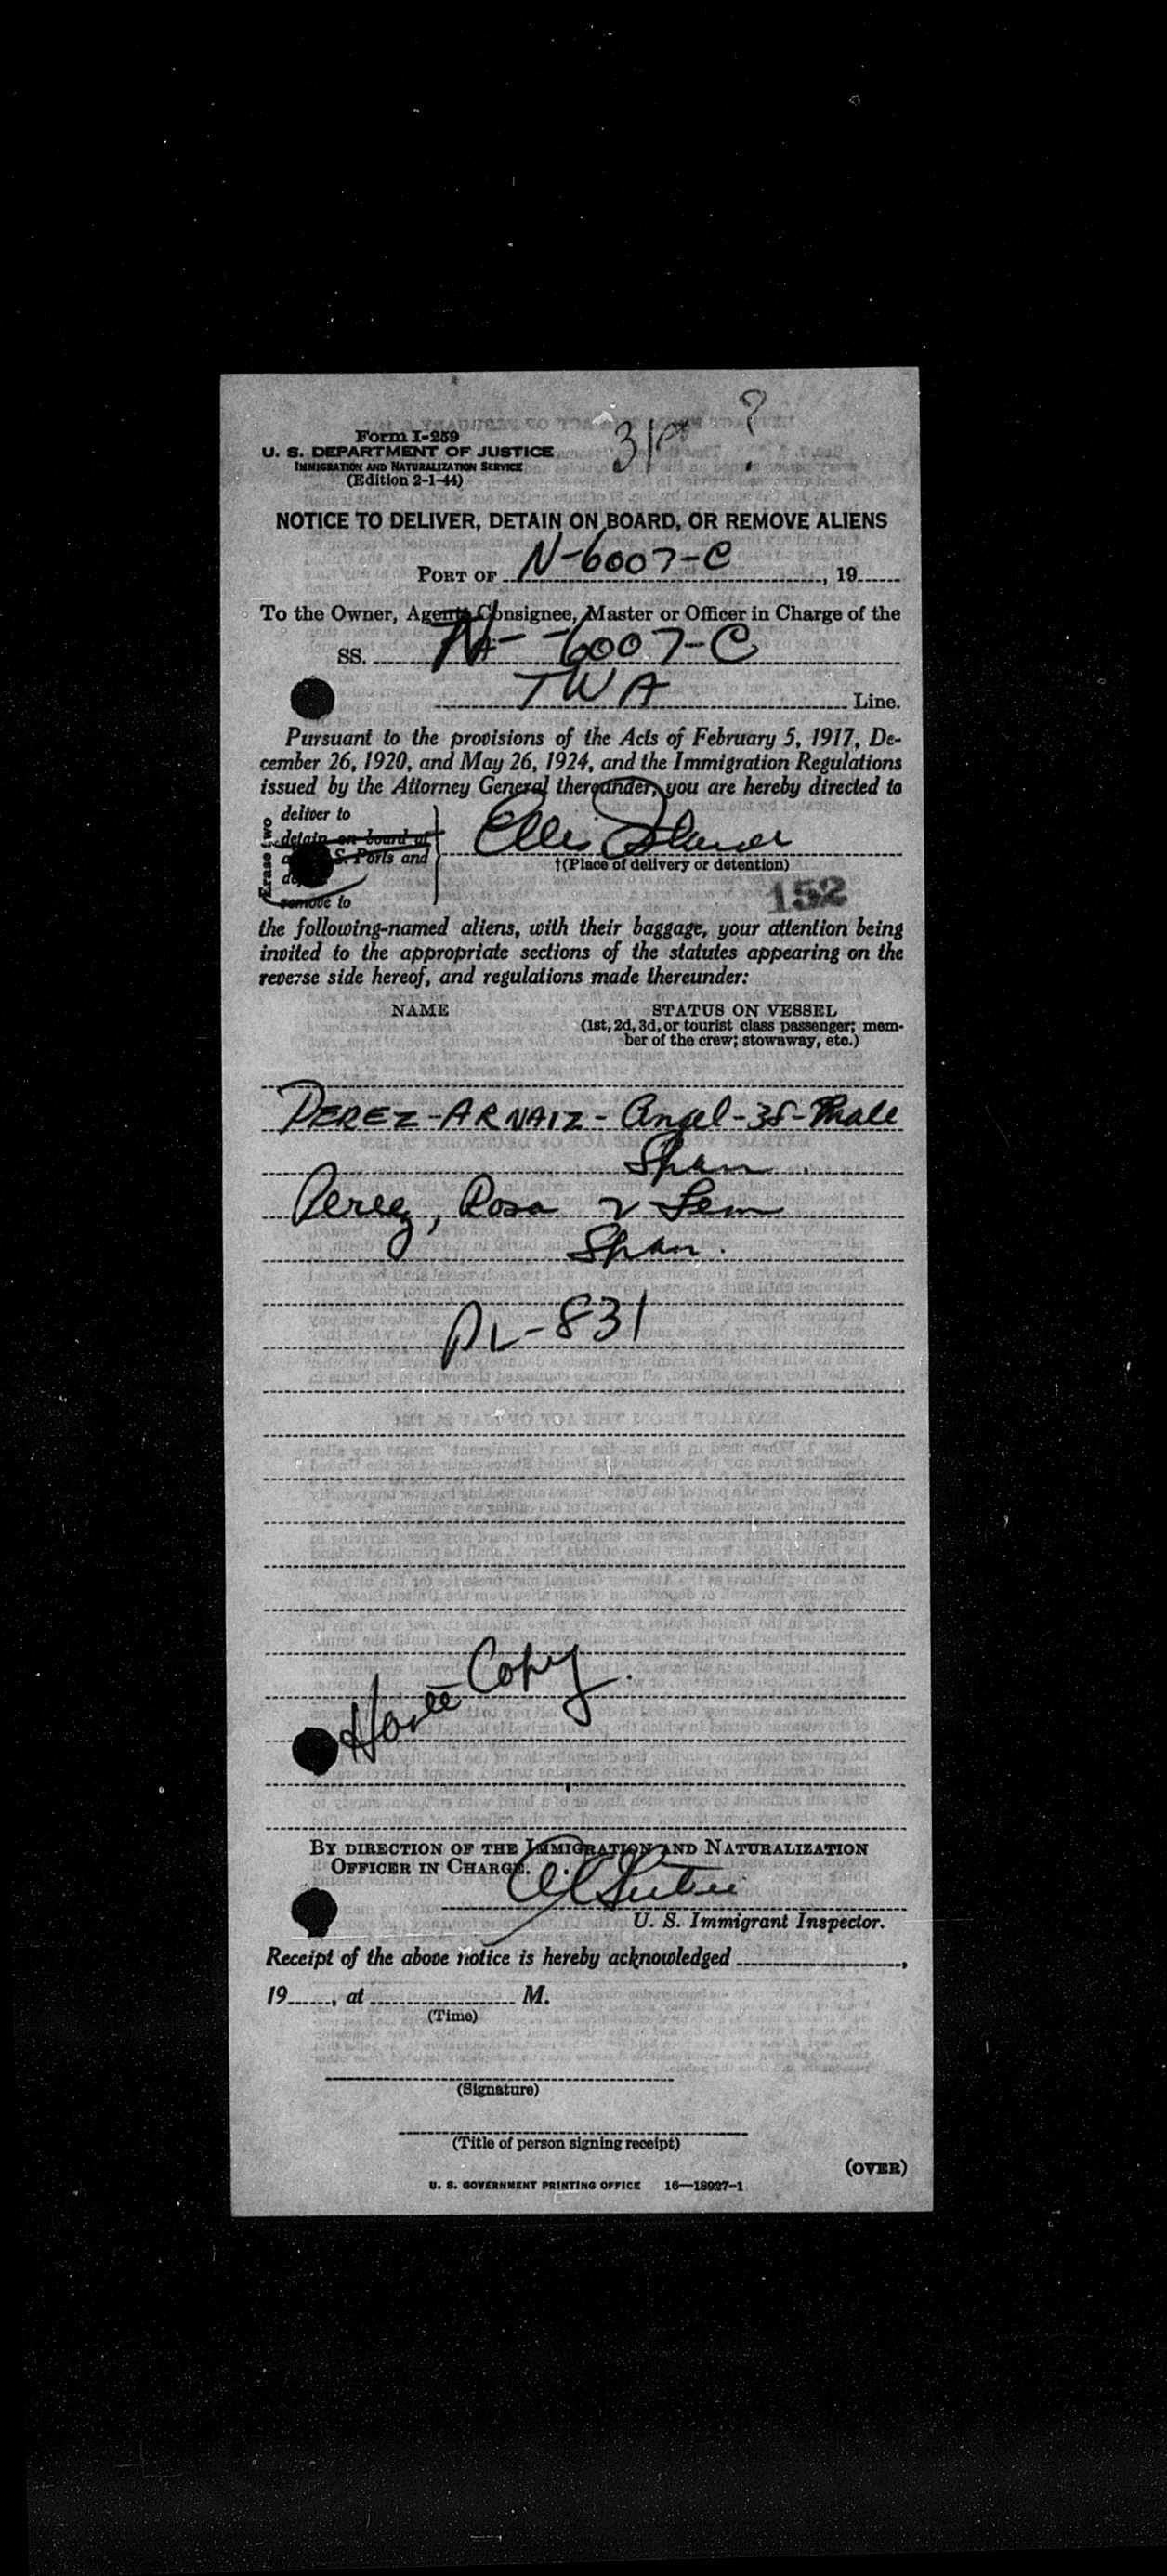 ?
Form I-259
U. S. DEPARTMENT OF JUSTICE
IMMIGRATION AND NATURALIZATION SERVICE
(Edition 2-1-44)
NOTICE TO DELIVER, DETAIN ON BOARD, OR REMOVE ALIENS
PORT OF N-6007-C, 19
To the Owner, Agent, Consignee, Master or Officer in Charge of the
SS. N-6007-C
TWA Line.
Pursuant to the provisions of the Acts of February 5, 1917, De-
cember 26, 1920, and May 26, 1924, and the Immigration Regulations
issued by the Attorney General thereunder, you are hereby directed to
Erase two
deliver to
detain on board at
S. Ports and
remove to
Ellis Island
†(Place of delivery or detention)
152
the following-named aliens, with their baggage, your attention being
invited to the appropriate sections of the statutes appearing on the
reverse side hereof, and regulations made thereunder:
NAME STATUS ON VESSEL
(1st, 2d, 3d, or tourist class passenger; mem-
ber of the crew; stowaway, etc.)
PEREZ-ARNAIZ-Angel-38-Male
Span
Perez, Rosa 2 Fem
Span.
PL-831
Copy
BY DIRECTION OF THE IMMIGRATION AND NATURALIZATION
OFFICER IN CHARGE.
U. S. Immigrant Inspector.
Receipt of the above notice is hereby acknowledged,
19, at M.
(Time)
(Signature)
(Title of person signing receipt)
(OVER)
U. S. GOVERNMENT PRINTING OFFICE 16—18927-1